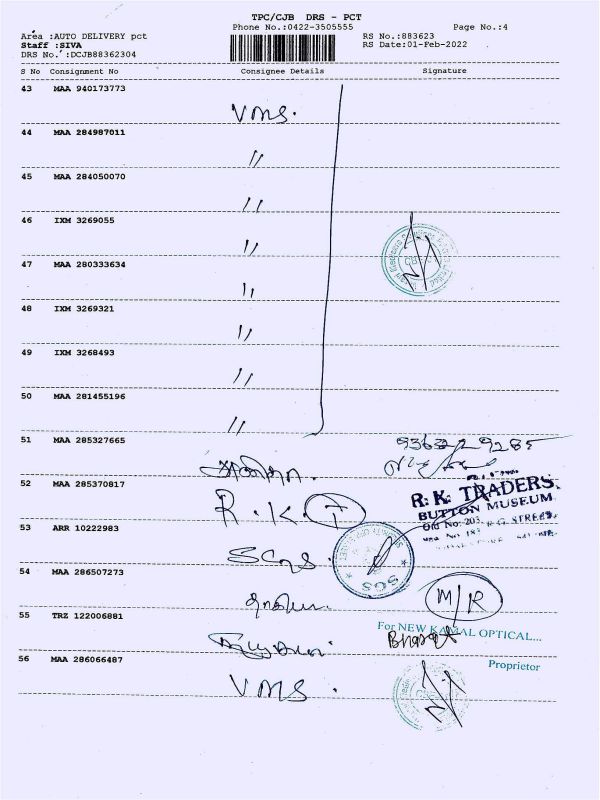 TPC/CJB DRS - PCT
Phone No.:0422-3505555 Page No.:4
Area :AUTO DELIVERY pct RS No.:883623
Staff :SIVA RS Date:01-Feb-2022
DRS No. :DCJB88362304
S No Consignment No Consignee Details Signature
43 MAA 940173773
VMS.
44 MAA 284987011
"
45 MAA 284050070
"
46 IXM 3269055
"
47 MAA 280333634
"
48 IXM 3269321
"
49 IXM 3268493
"
50 MAA 281455196
"
51 MAA 285327665
52 MAA 285370817
R.K.T
R.K. TRADERS.
BUTTON MUSEUM
Old No: 203,
53 ARR 10222983
SCGS.
SGS
54 MAA 286507273
M/R
55 TRZ 122006881
For NEW KAMAL OPTICAL...
Bharat
Proprietor
56 MAA 286066487
VMS.